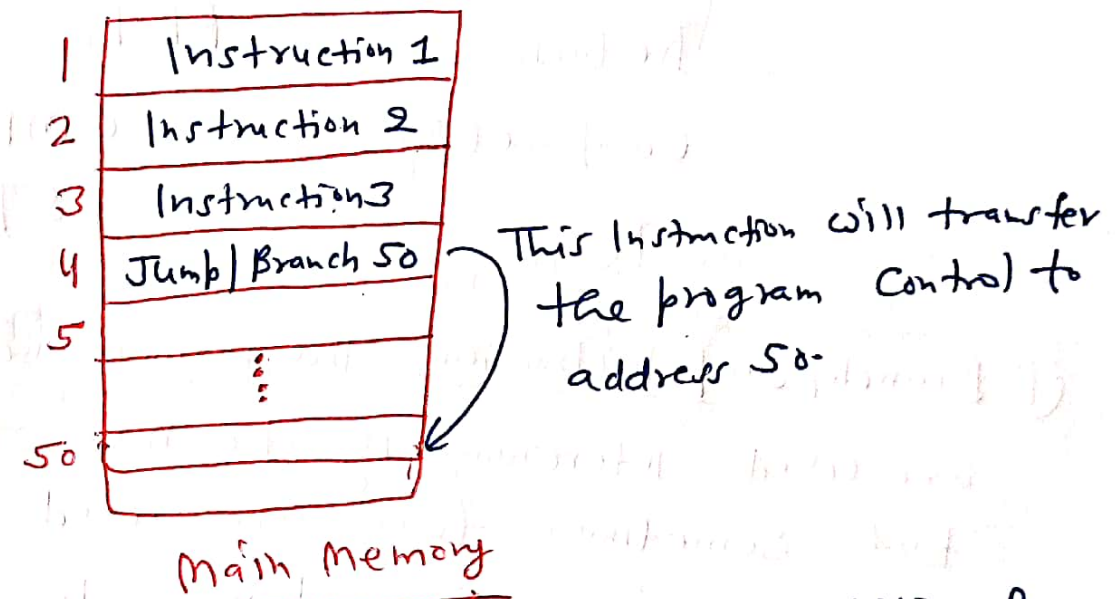 1 Instruction 1
2 Instruction 2
3 Instruction 3
4 Jump | Branch 50
5
50
This Instruction will transfer
the program control to
address 50.
Main Memory